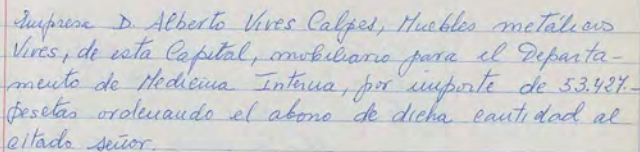 Empresa D. Alberto Vives Calpes, Muebles metálicos
Vives, de esta Capital, mobiliario para el Departa-
mento de Medicina Interna, por importe de 53.427.-
pesetas ordenando el abono de dicha cantidad al
citado señor.